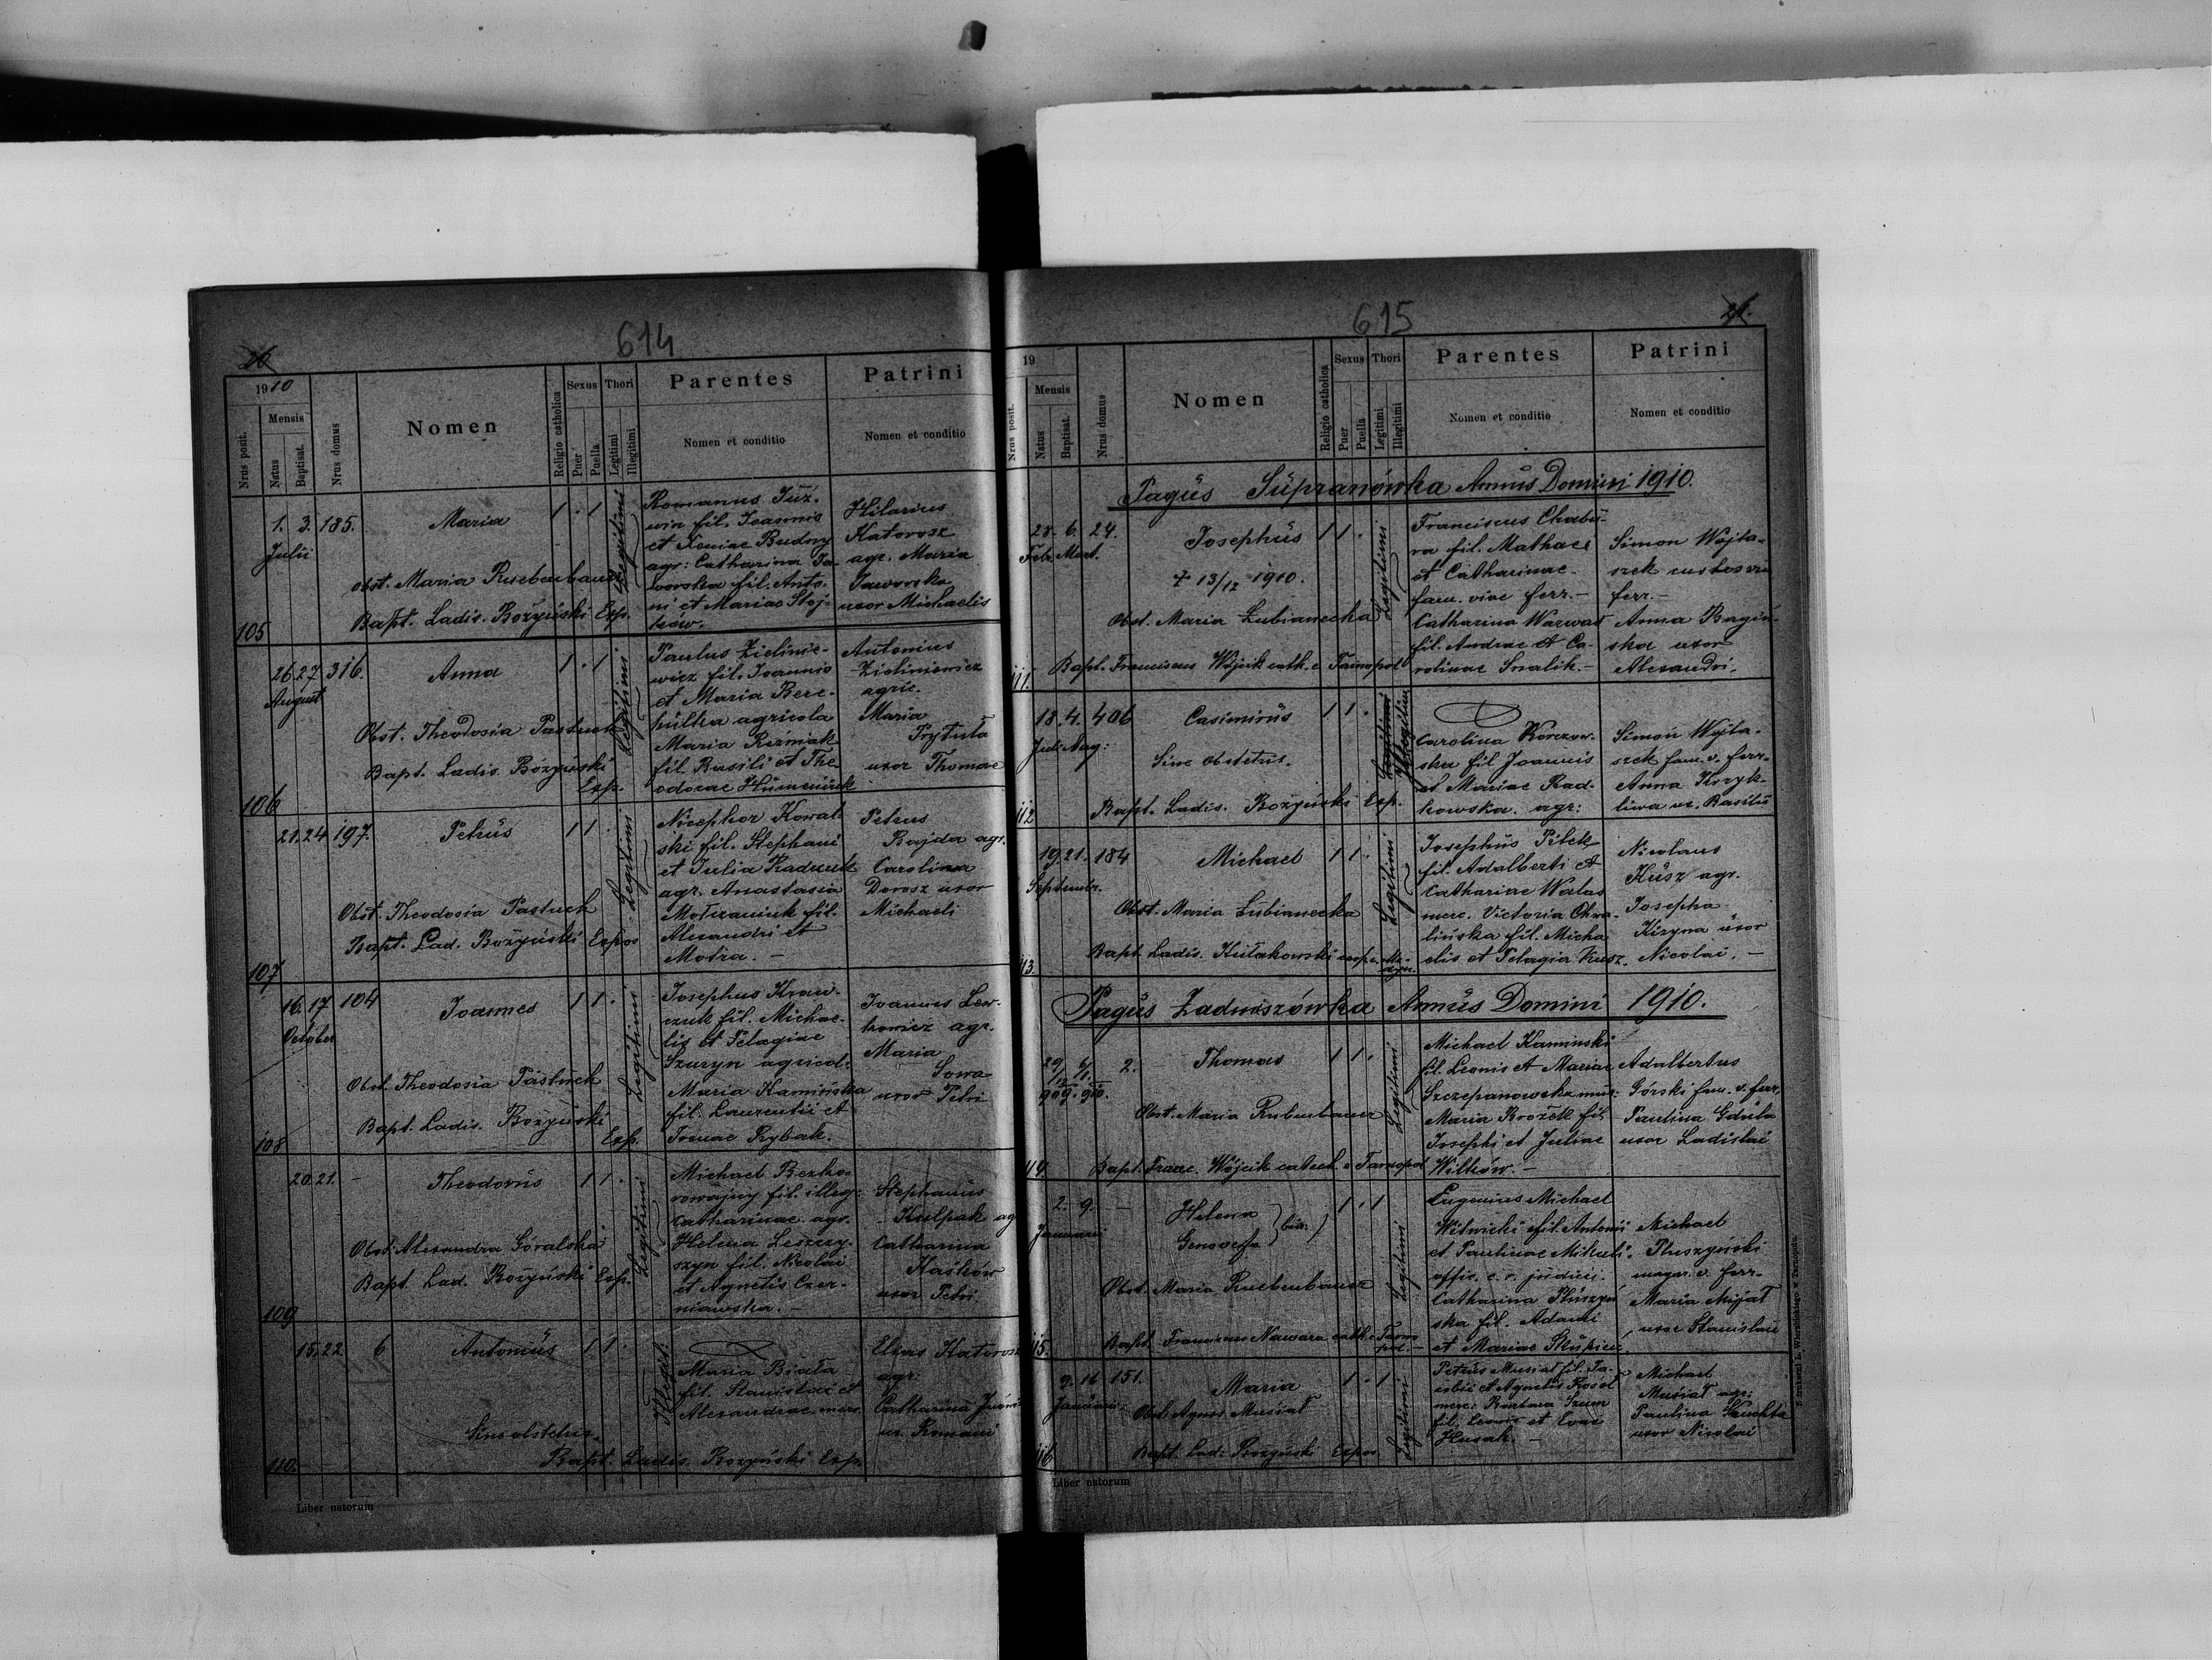 614
20
1910
Nrus posit.
Mensis
Natus
Baptisat.
Nrus domus
Nomen
Religio catholica
Sexus
Puer
Puella
Thori
Legitimi
Illegitimi
Parentes
Nomen et conditio
Patrini
Nomen et conditio
105
1. 3. 185.
Julii
Maria
1 . 1
Legitimi
obst. Maria
Bapt. Ladis. Bożyński Exp.
Romanus Juz-
win fil. Joannis
et Xeniae Budny
agr: Catharina Ja-
worska fil. Anto-
ni et Mariae Stoj-
ków.
Hilarius
Katorosz
agr. Maria
Jaworska
uxor Michaelis
106
26. 27. 316.
August
Anna
1 . 1
Legitimi
Obst. Theodosia Pastuch
Bapt. Ladis. Bożyński
Exp.
Paulus Zielinie-
wicz fil. Joannis
et Maria Bere-
hulka agricola
Maria Reźniak
fil. Basili et The-
odorae Humeniuk
Antonius
Zieliniewicz
agric.
Maria
Prytuła
uxor Thomae
107
21. 24. 197.
Petrus
1 1 .
Legitimi
Obst. Theodosia Pastuch
Bapt. Lad. Bożyński Expos
Nicephor Kowal-
ski fil. Stephani
et Julia
agr. Anastasia
Mołczaniuk fil.
Alexandri et
Motra. —
Petrus
Bajda agr.
Carolina
Dorosz uxor
Michaeli
108
16. 17 104
October
Joannes
1 1 .
Legitimi
Obst. Theodosia Pastuch
Bapt. Ladis. Bożyński
Exp.
Josephus Kraw-
czuk fil. Michae-
lis et Pelagiae
Szuryn agricol.
Maria Kamińska
fil. Laurentii et
Irenae Rybak.
Joannes Lew-
kowicz agr.
Maria
Sowa
uxor Petri
109
20. 21. -
Theodorus
1 1 .
Legitimi
Obst. Alexandra Góralska
Bapt. Lad. Bożyński Exp.
Michael Bezko-
rowajny fil. illeg:
Catharinae agr.
Helena Leszczy-
szyn fil. Nicolai
et Agnetis Czer-
niawska. —
Stephanus
Kulpak ag
Catharina
Kaśków
uxor Petri
110.
15. 22. 6
Antonius
1 1 .
Illegit.
Sine obstetric.
Bapt. Ladis. Bożyński Exp.
Maria Biała
fil. Stanislai et
Alexandrae merc.
Elias Katorosz
agr.
Catharina
ux. Romani
Liber natorum
615
21.
19
Nrus posit.
Mensis
Natus
Baptisat.
Nrus domus
Nomen
Religio catholica
Sexus
Puer
Puella
Thori
Legitimi
Illegitimi
Parentes
Nomen et conditio
Patrini
Nomen et conditio
Pagus Supranówka Annus Domini 1910.
111.
28. 6. 24.
Febr. Mart.
Josephus
1 1 .
Legitimi
+ 13/12 1910.
Obst. Maria Łubianecka
Bapt. Franciscus Wójcik cath. e Tarnopol
Franciscus Chabu-
ra fil. Mathaei
et Catharinae
fam. viae ferr. —
Catharina Warwas
fil. Andreae et Ca-
rolinae Smalik. —
Simon Wojta-
szek custos via
ferr. —
Anna Bagin-
ska uxor
Alexandri.
112
18. 4. 406
Juli Aug:
Casimirus
1 1 .
Legitimi
Illegitim
Sine obstetric.
Bapt. Ladis. Bożyński Exp.
Carolina Korczow-
ska fil Joannis
et Mariae Rad-
kowska. agr:
Simon Wojta-
szek fam. v. ferr.
Anna Krzyk-
liwa ux. Basilii
113.
19. 21. 184
Septembr.
Michael
1 1 .
Legitimi
Obst. Maria Łubianecka
Bapt. Ladis. Kułakowski
Josephus Pitek
fil. Adalberti et
Catharinae Walas
merc. Victoria Chwa-
lińska fil. Micha-
elis et Pelagia Kusz.
Nicolaus
Kusz agr.
Josepha
Kiryna uxor
Nicolai. —
Pagus Zadniszówka Annus Domini 1910.
114.
29/12 6/1. 2.
909. 910.
Thomas
1 1 .
Legitimi
Obst. Maria Rubenbauer
Bapt. Franc. Wójcik catech. e Tarnopol
Michael Kaminski
fil. Leonis et Mariae
Szczepanowska mur:
Maria Brożek fil.
Josephi et Juliae
Wilków. —
Adalbertus
Górski fam. v. ferr.
Paulina Gdula
uxor Ladislai
115.
2. 9. —
Januarii
Helena
Genovefa } bin. }
1 . 1
Legitimi
Obst. Maria Ruebenbauer
Bapt. Franciscus Nawara cath. e Tarno-
pol. —
Eugenius Michael
Witwicki fil. Antonii
et Paulinae Mikuli.
offic. c. r. judici.
Catharina Płuszyń-
ska fil. Adami
et Mariae Skupień.
Michael
Płuszyński
magaz. v. ferr.
Maria Mijał
uxor Stanislai
116.
9. 16 151.
Januarii
Maria
1 . 1
Legitimi
Obst. Agnes Musiał
Bapt. Lad: Bożyński Expos
Petrus Musiał fil. Ja-
cobii et Agnetis Kosel
merc: Barbara Szum
fil. Leonis et Evae
Husak. —
Michael
Musiał agr:
Paulina
uxor Nicolai
Liber natorum